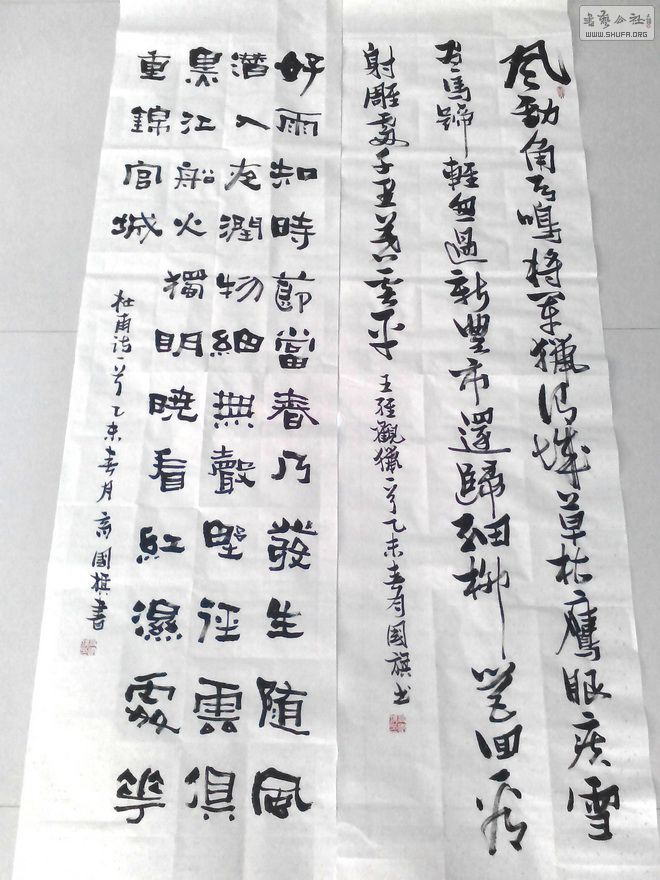 書藝公社
WWW.SHUFA.ORG
風勁角弓鳴將軍獵渭城草枯鷹眼疾雪
盡馬蹄輕忽過新豐市還歸細柳營回看
射雕處千里暮雲平
王維觀獵一首乙未春商國旗書
好雨知時節當春乃發生隨風
潛入夜潤物細無聲野徑雲俱
黑江船火獨明曉看紅濕處華
重錦官城
杜甫詩一首乙未春月商國旗書